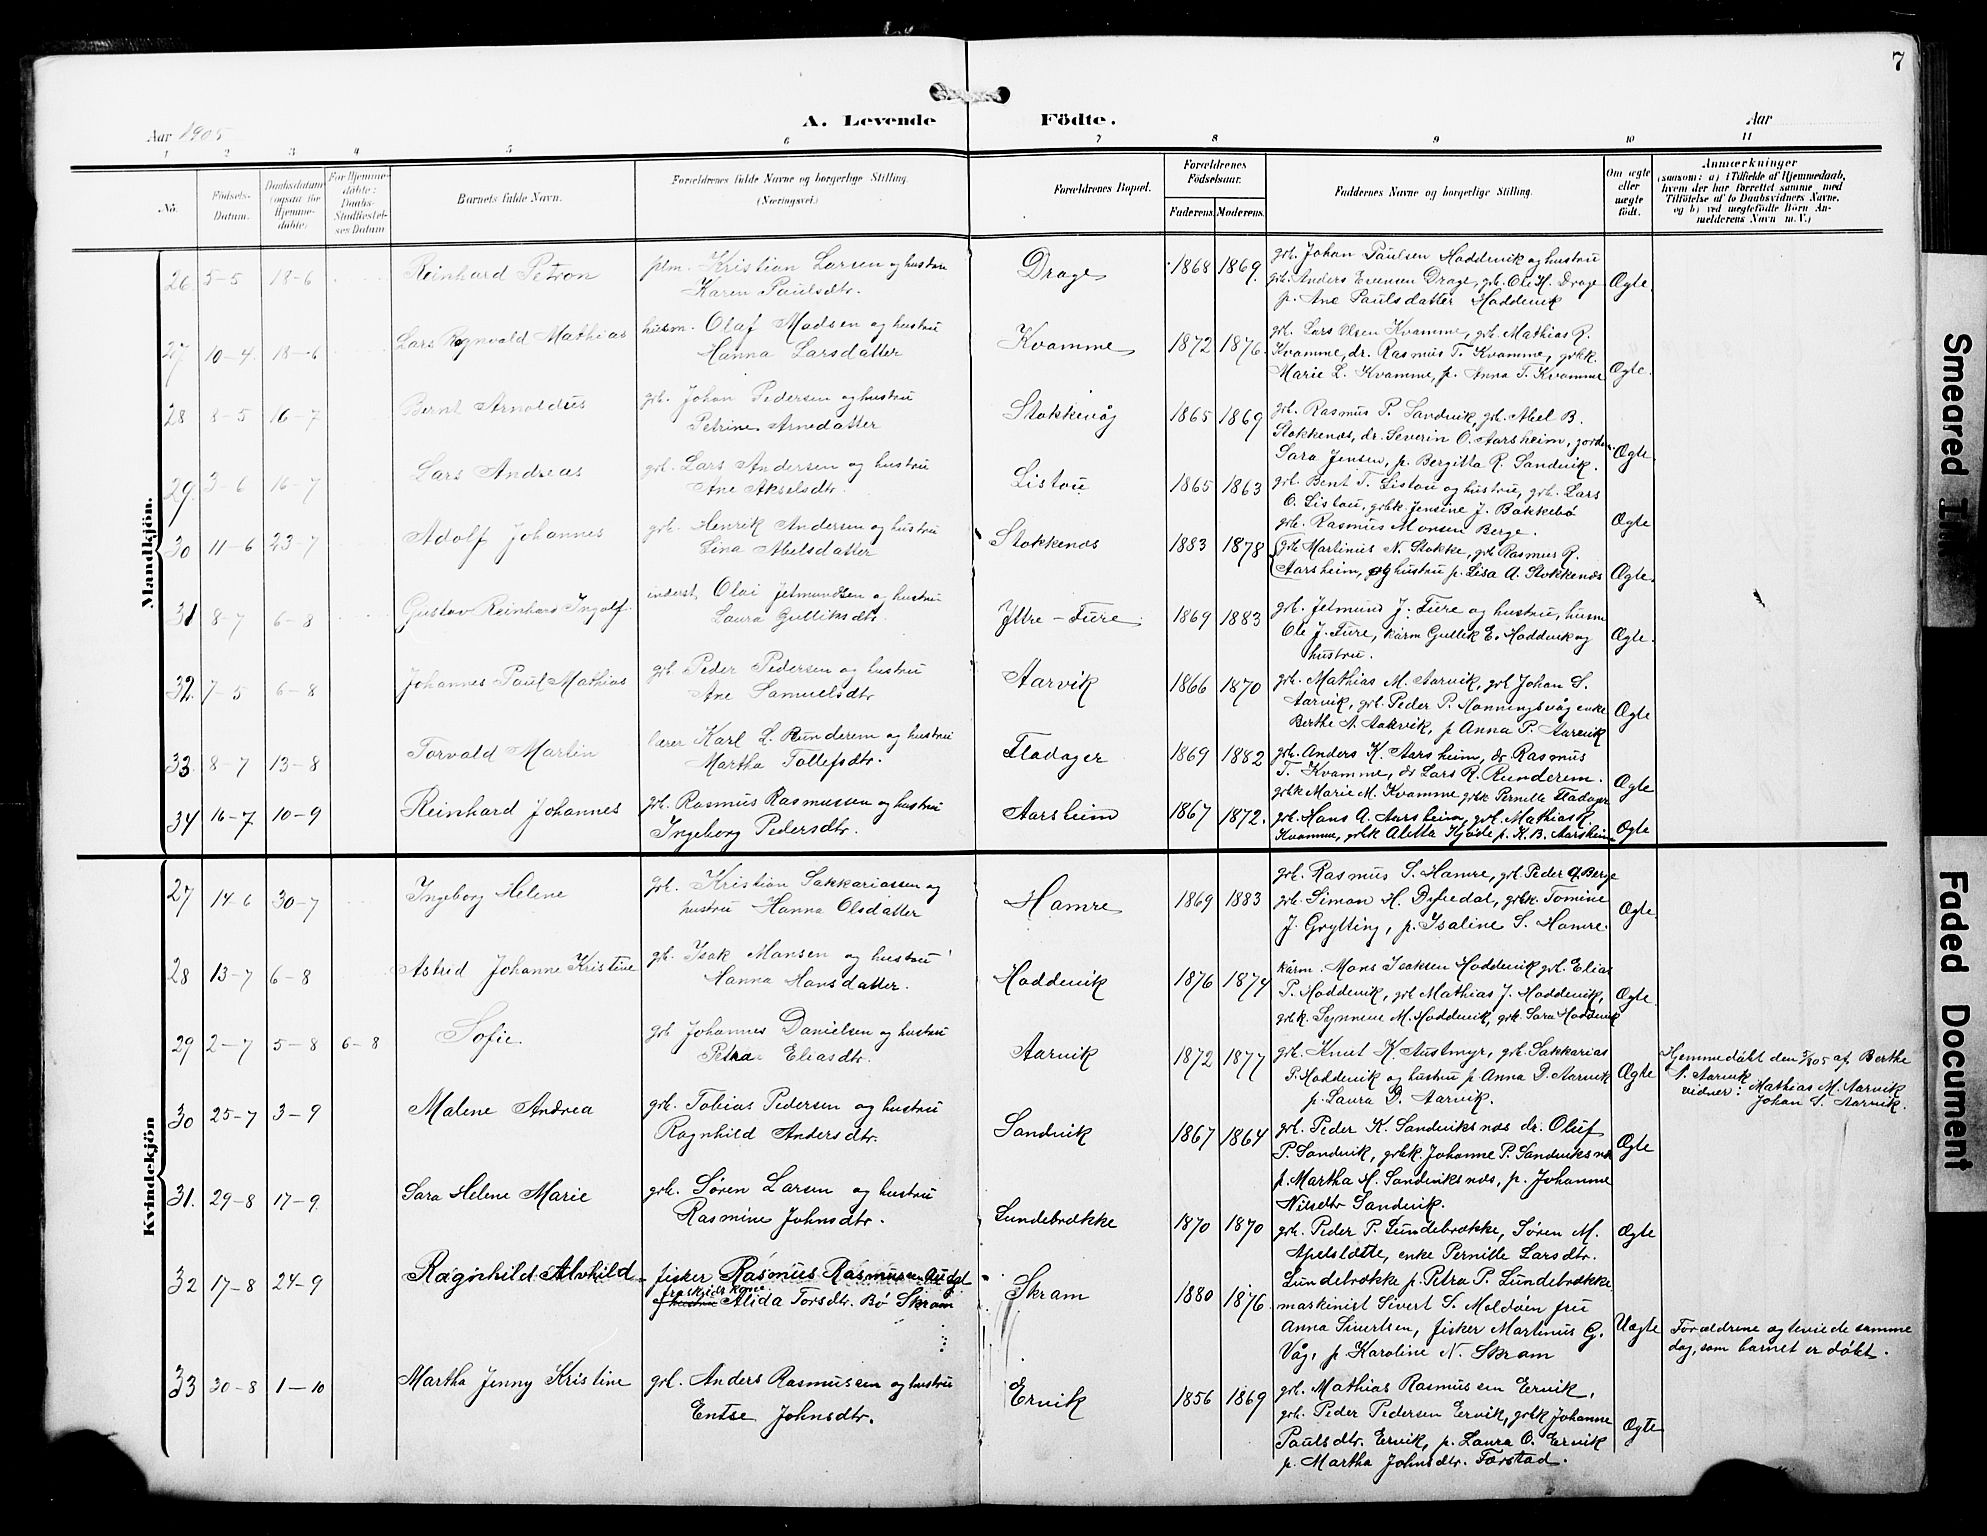 7
Aar 1905
A. Levende Födte.
Aar
1 2 3 4 5 6 7 8 9 10 11
No.
Födsels-
Datum.
Daabsdatum
(ogsaa for
Hjemme-
döbte)
For Hjemme-
döbte:
Daabs-
Stadfæstel-
ses Datum
Barnets fulde Navn.
Forældrenes fulde Navne og borgerlige Stilling.
(Næringsvei.)
Forældrenes Bopæl.
Forældrenes
Födselsaar.
Faderens. Moderens.
Faddernes Navne og borgerlige Stilling.
Om ægte
eller
uægte
født.
Anmærkninger
(saasom: a) i Tilfælde af Hjemmedaab,
hvem der har forrettet samme, med
Tilföielse af to Daabsvidners Navne,
og b) ved uægtefödte Börn An-
melderens Navn m. V.)
Mandkjön.
26 5-5 18-6 Reinhard Petron
plm. Kristian Larsen og hustru
Karen Paulsdtr.
Drage 1868 1869.
grb. Johan Paulsen Hoddevik og hustru
grb. Anders Evensen Drage, grb. Ole H. Drage
p. Ane Paulsdatter Hoddevik
Ægte.
27 10-4. 18-6 Lars Ragnvald Mathias
husm. Olaf Madsen og hustru
Hanna Larsdatter
Kvamme 1872 1876.
grb. Lars Olsen Kvamme, grb. Mathias R.
Kvamme, dr. Rasmus T. Kvamme, grbk.
Marie L. Kvamme, p. Anna T. Kvamme
Ægte.
28 8-5 16-7 Bernt Arnoldus
grb. Johan Pedersen og hustru
Petrine Arnedatter
Stokkevåg 1865 1869
grb. Rasmus P. Sandvik, grb. Abel B.
Stokkenæs, dr. Severin O. Aarsheim, jordm.
Sara Jensen, p. Bergitta R. Sandvik.
Ægte.
29. 3-6 16-7 Lars Andreas
grb. Lars Andersen og hustru
Ane Akselsdtr.
Listou 1865 1863
grb. Bent T. Listou og hustru, grb. Lars
O. Listau, grbk Jensine J. Bakkebø
grb. Rasmus Monsen Berge.
Ægte
30 11-6 23-7 Adolf Johannes
grb. Henrik Andersen og hustru
Lina Abelsdatter
Stokkenæs 1883 1878
grb Martinus N. Stokke, grb Rasmus R.
Aarsheim, og hustru p. Lisa A. Stokkenæs
Ægte.
31 8-7 6-8 Gustav Reinhard Ingolf.
inderst. Olai Jetmundsen og hustru
Laura Gulliksdtr.
Yttre-Fure 1869 1883
grb. Jetmund J. Fure og hustru, husm
Ole J. Fure, kårm Gullik E. Hoddevik og
hustru.
Ægte.
32. 7-5 6-8 Johannes Paul Mathias
grb. Peder Pedersen og hustru
Ane Samuelsdtr
Aarvik 1866 1870
grb. Mathias M. Aarvik, grb Johan S.
Aarvik, grb. Peder P. Honningsvåg enke
Berthe A. Aarvik, p Anna P. Aarvik
Ægte
33 8-7 13-8 Torvald Martin
lærer Karl L. Runderem og hustru
Martha Tollefsdtr.
Fladager 1869 1882
grb. Anders K. Aarsheim, dr Rasmus
T. Kvamme, dr Lars R. Runderem.
grbk Marie M. Kvamme grbk Pernille Fladager
Ægte
34 16-7 10-9 Reinhard Johannes
grb. Rasmus Rasmussen og hustru
Ingeborg Pedersdtr.
Aarsheim 1867 1872.
grb. Hans A. Aarsheim, grb. Mathias R
Kvamme, grbk Aletta Kjøde p. K. B. Aarsheim
Ægte
Kvindekjön
27 14-6 30-7 Ingeborg Helene
grb. Kristian Sakkariassen og
hustru Hanna Olsdatter
Hamre 1869 1883
grb. Rasmus S. Hamre, grb. Peder A. Berge
grb. Simon H. Dyredal, grbk. Tomine
J. Grytting, p. Isaline S. Hamre.
Ægte
28 13-7 6-8 Astrid Johanne Kristine
grb. Isak Monsen og hustru
Hanna Hansdatter.
Hoddevik 1876 1874
kårm. Mons Isaksen Hoddevik grb. Elias
P. Hoddevik, grb Mathias J. Hoddevik,
grbk. Synneve M. Hoddevik, grk. Sara Hoddevik
Ægte.
29 2-7 5-8 6-8 Sofie
grb Johannes Danielsen og hustru
Petra Eliasdtr.
Aarvik 1872 1877
grb. Knut K. Austmyr, grb. Sakkarias
P. Hoddevik og hustru p Anna D. Aarvik
p. Laura D. Aarvik.
Ægte
Hjemmedøbt den 5/8 05 af Berthe
A. Aarvik
vidner: Mathias M. Aarvik
Johan S. Aarvik.
30 25-7 3-9 Malene Andrea
grb. Tobias Pedersen og hustru
Ragnhild Andersdtr.
Sandvik 1867 1864
grb. Peder K. Sandviksnæs dr. Oluf
P. Sandvik, grbk. Johanne P. Sandviksnæs
p. Martha M. Sandviksnæs, p. Johanne
Nilsdtr Sandvik.
Ægte
31. 29-8 17-9 Sara Helene Marie
grb. Søren Larsen og hustru
Rasmine Johnsdtr.
Lundebrække 1870 1870
grb. Peder P. Lundebrække, Søren M.
Apelsætte, enke Pernille Larsdtr.
Lundebrække p. Petra P. Lundebrække
Ægte
32 17-8 24-9 Ragnhild Alvhild
fisker Rasmus Rasmussen
fraskildt kone
Alida Torsdtr. Bø Skram
Skram 1880 1876.
maskinist Sivert S. Moldøen fru
Anna Sivertsen, fisker Martinus G.
Våg, p Karoline N. Skram
Uægte
Forældrene ægteviede samme
dag, som barnet er døbt.
33 30-8 1-10 Martha Jenny Kristine
grb. Anders Rasmussen og hustru
Entse Johnsdtr.
Ervik 1856 1869
grb. Mathias Rasmussen Ervik,
grb. Peder Pedersen Ervik, grbk Johanne
Paulsdtr. Ervik, p. Laura O. Ervik
p. Martha Johnsdtr. Forstad.
Ægte
Smeared Ink
Faded Document